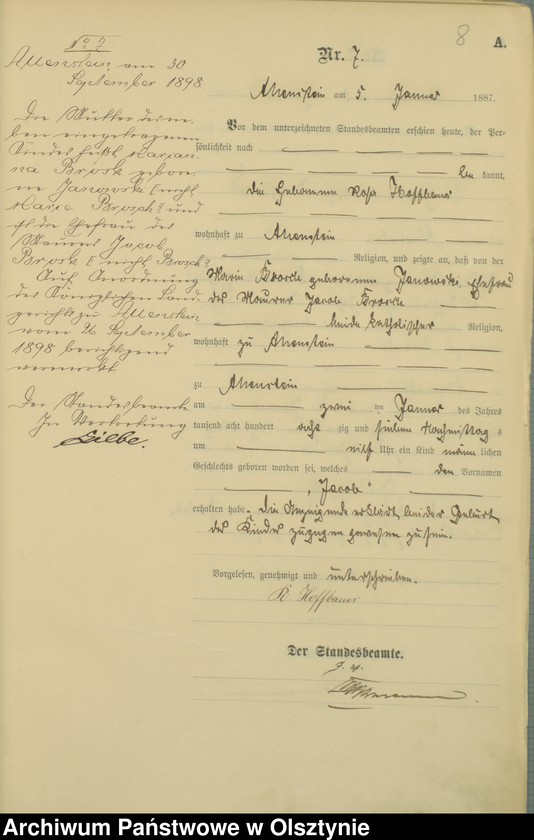 8
A.
Nr. 7.
Allenstein am 5. Januar 1887.
Vor dem unterzeichneten Standesbeamten erschien heute, der Per-
sönlichkeit nach
kannt,
die Hebamme Hoffbauer
wohnhaft zu Allenstein
Religion, und zeigte an, daß von der
Marie geborenen Janowski, Ehefrau
des Maurer Jacob
beide katholischer Religion,
wohnhaft zu Allenstein
zu Allenstein
am zwei ten Januar des Jahres
tausend acht hundert acht zig und sieben Nachmittag s
um Uhr ein Kind männ lichen
Geschlechts geboren worden sei, welches den Vornamen
"Jacob"
erhalten habe. die Anzeigende erklärt, bei der Geburt
des Kindes zugegen gewesen zu sein.
Vorgelesen, genehmigt und unterschrieben.
R Hoffbauer
Der Standesbeamte.
No 7
Allenstein, am 30
September 1898
Die Mutter des ne-
ben eingetragenen
Kindes heißt Marian-
na Brosk gebore-
ne Janowski nicht
Marie und
ist die Ehefrau des
Maurers Jacob
Brosk (nicht
Auf Anordnung
des Königlichen Land-
gerichts zu Allenstein
vom 26 September
1898 berichtigend
vermerkt
Der Standesbeamte
In Vertretung
Archiwum Państwowe w Olsztynie